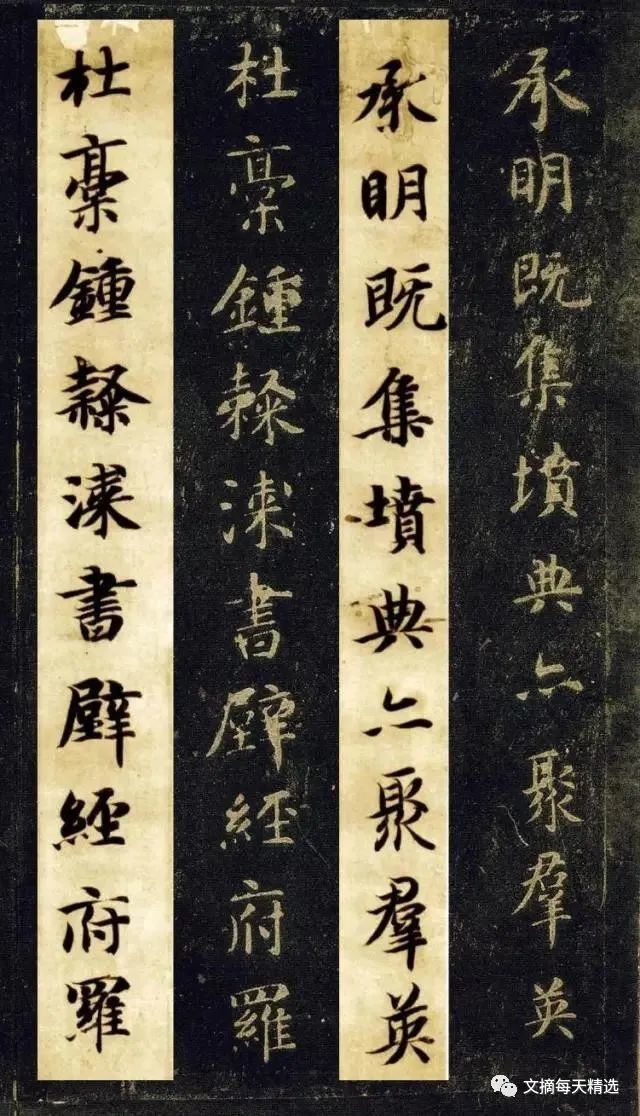 承明既集墳典亦聚羣英
承明既集墳典亦聚羣英
杜稾鍾隸漆書壁經府羅
杜稾鍾隸漆書壁經府羅
文摘每天精选